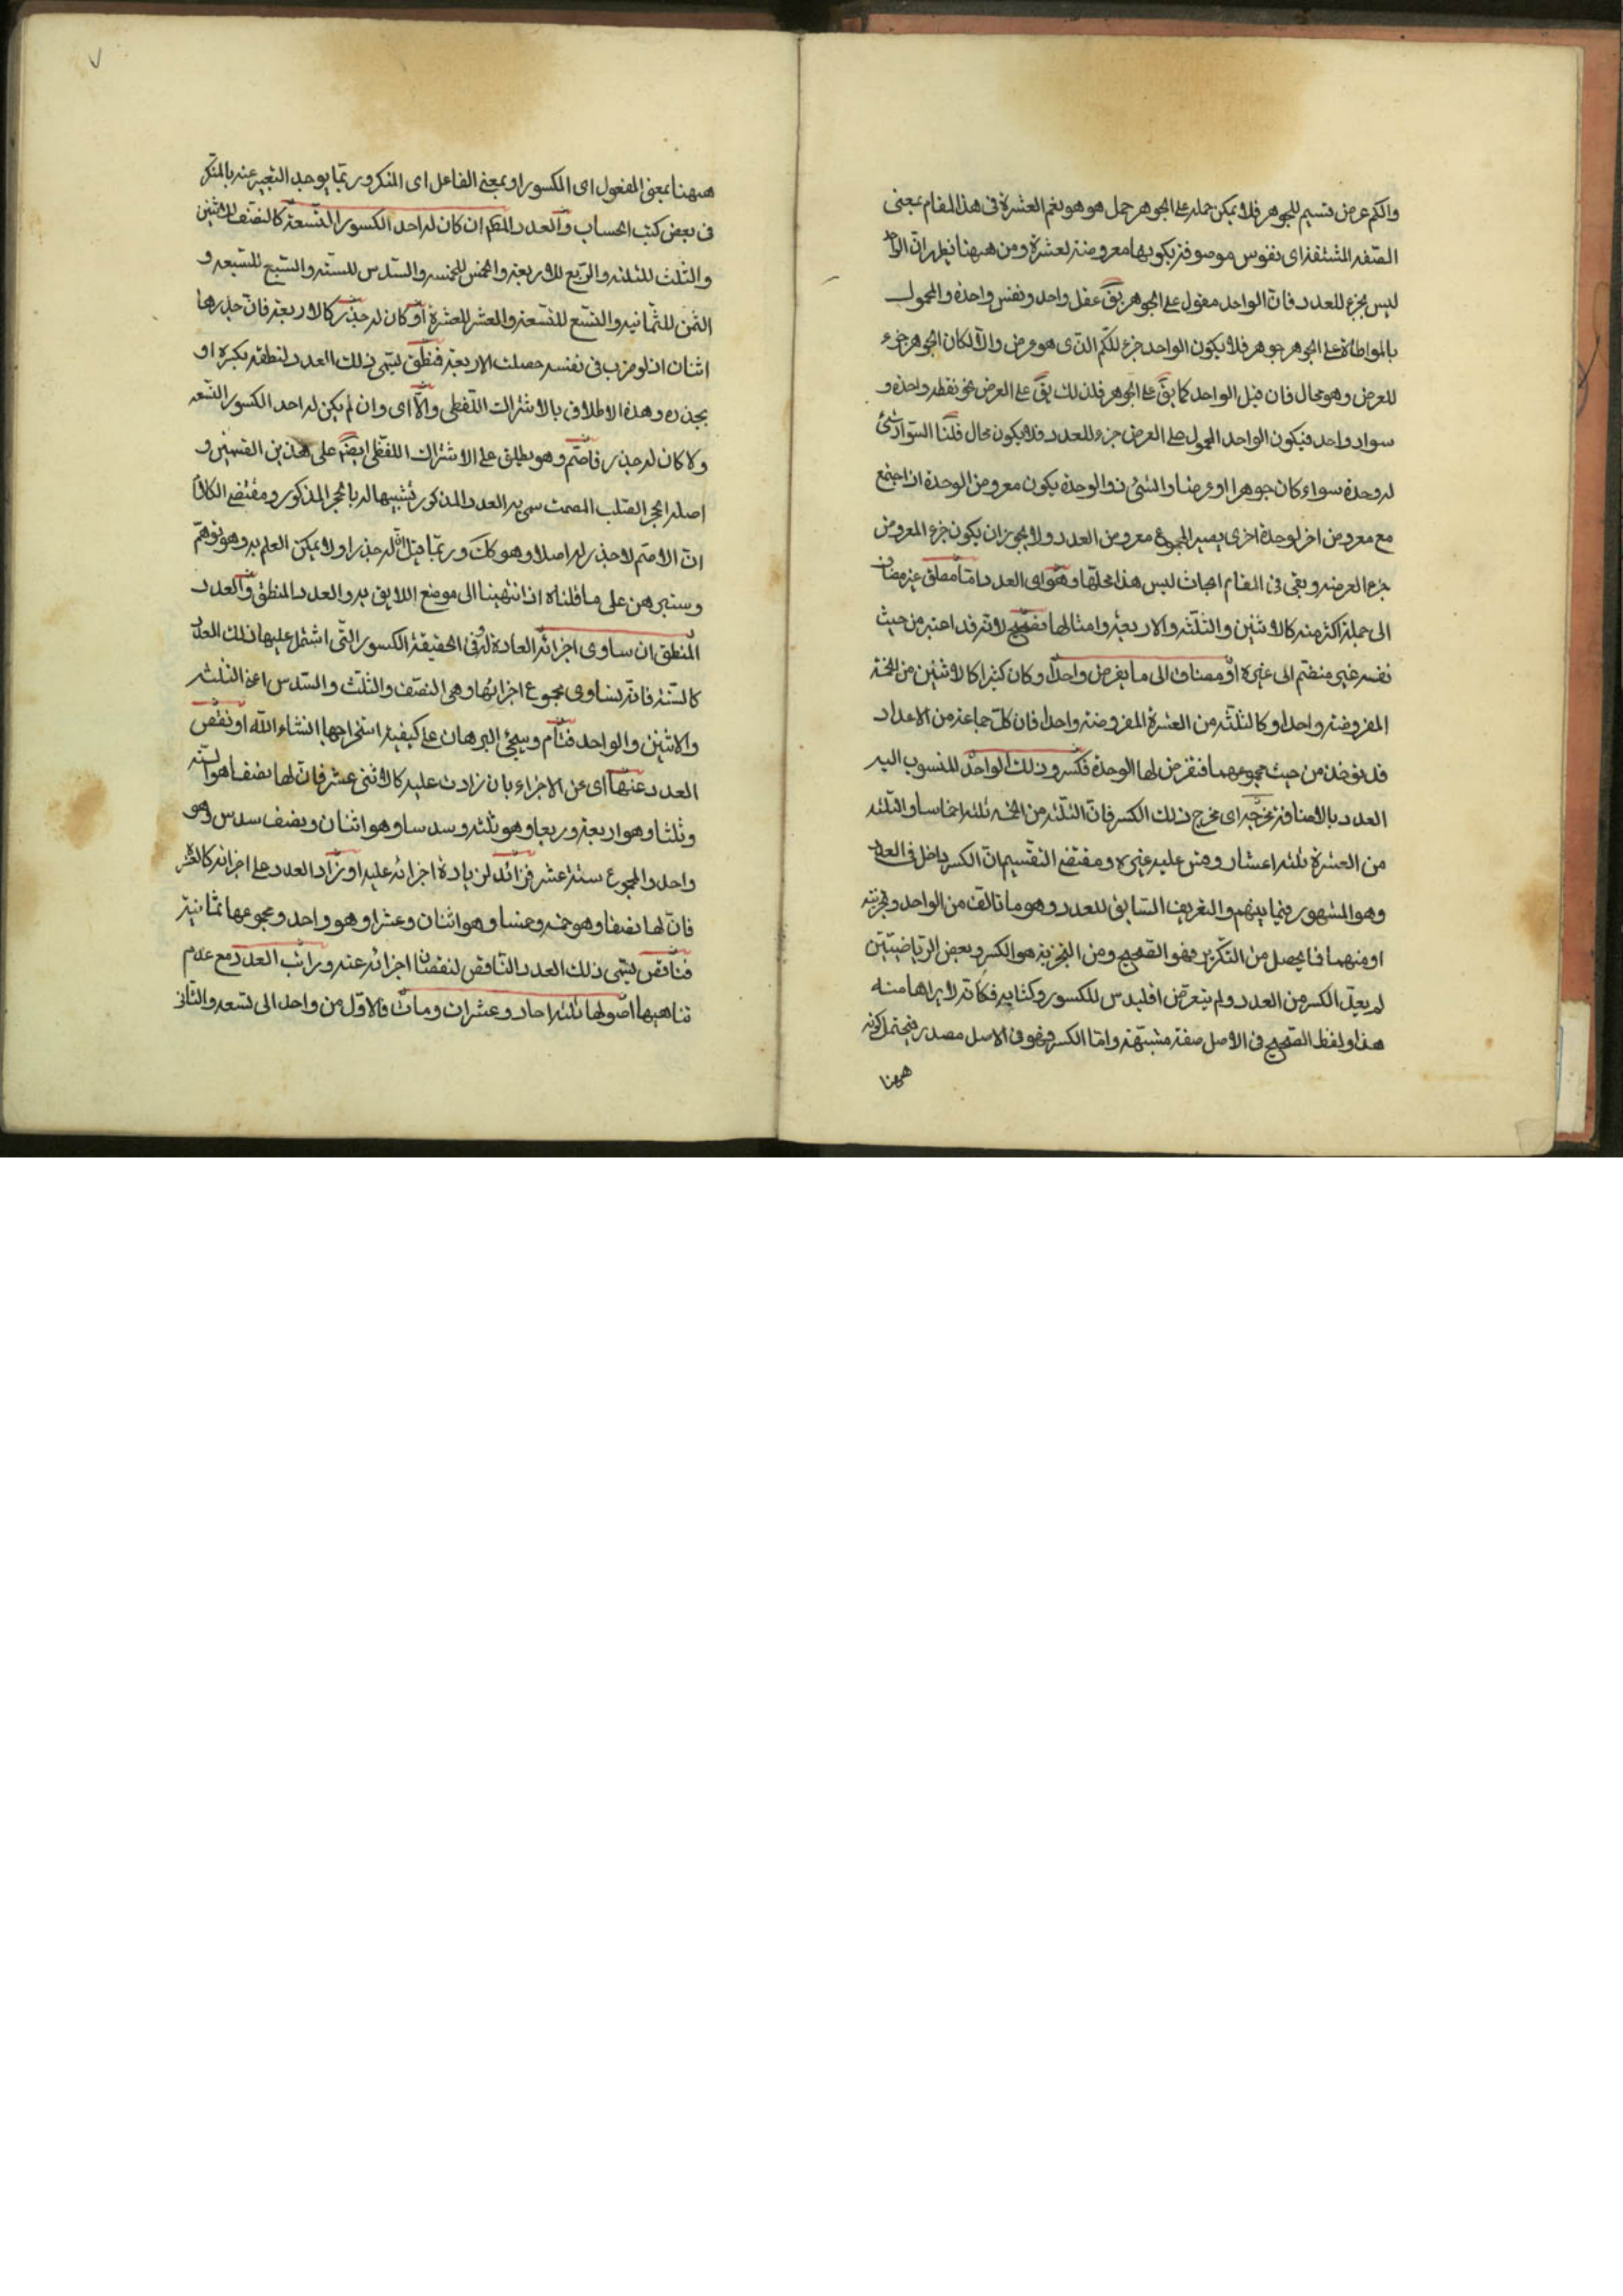 والكم عرض قسيم للجوهر فلا يمكن حمله على الجوهر حمل هو هو نعم العشرة فى هذا المقام بمعنى
الصفة المشتقة اى نفوس موصوفة بكونها معروضة لعشرة ومن ههنا يظهر ان الواحد
ليس بجزء للعدد فان الواحد مقول على الجوهر يق عقل واحد ونفس واحدة والمحمول
بالمواطاة على الجوهر جوهر فلا يكون الواحد جزء للكم الذى هو عرض والا لكان الجوهر جزء
للعرض وهو محال فان قيل الواحد كما يق على الجوهر فلذلك يق على العرض نحو نقطة واحدة و
سواد واحد فيكون الواحد المحمول على العرض جزء للعدد فلا يكون محال قلنا السواد شئ
له وحدة سواء كان جوهرا او عرضا والشئ ذو الوحدة يكون معروض الوحدة اذا اجتمع
مع معروض اخر لوحدة اخرى يصير المجموع معروض العدد ولا يجوز ان يكون جزء المعروض
جزء العرضه وبقى فى المقام ابحاث ليس هذا محلها وهو اى العدد اما مطلق غير مضاف
الى جملة اكثر منه كالاثنين والثلثة والاربعة وامثالها فصحيح لانه قد اعتبر من حيث
نفسه غير منضم الى غيره او مضاف الى ما يفرض واحدا وكان كثيرا كالاثنين من الخمسة
المفروضة واحدا وكالثلثة من العشرة المفروضة واحدا فان كل جماعة من الاعداد
قد تؤخذ من حيث مجموعهما فتفرض لها الوحدة فكسر وذلك الواحد المنسوب اليه
العدد بالاضافة مخرجه اى مخرج ذلك الكسر فان الثلثة من الخمسة ثلثة اخماسا والثلثة
من العشرة ثلثة اعشار وقس عليه غيره ومقتضى التقسيم ان الكسر داخل فى العدد
وهو المشهور فيما بينهم والتعريف السابق للعدد وهو ما تالف من الواحد وتجزئته
او منهما فما يحصل من التكرير فهو الصحيح ومن التجزية هو الكسر وبعض الرياضيين
لم يعد الكسر من العدد ولم يتعرض اقليدس للكسور وكتابه فكانه لا يراها منه
هذا ولفظ الصحيح فى الاصل صفة مشبهة واما الكسر فهو فى الاصل مصدر فيحتمل كونه
ههنا
٧
ههنا بمعنى المفعول اى المكسور او بمعنى الفاعل اى المنكر وربما يوجد التعبير عنه بالمنكسر
فى بعض كتب الحساب والعدد المطلق ان كان له احد الكسور التسعة كالنصف للاثنين
والثلث للثلثة والربع للاربعة والخمس للخمسة والسدس للستة والسبع للسبعة و
الثمن للثمانية والتسع للتسعة والعشر للعشرة او كان له جذر كالاربعة فان جذرها
اثنان اذ لو ضرب فى نفسه حصلت الاربعة فمنطق يسمى ذلك العدد لنطقه بكسره او
بجذره وهذه الاطلاق بالاشتراك اللفظى والا اى وان لم يكن له احد الكسور التسعة
ولا كان له جذر فاصم وهو يطلق على الاشتراك اللفظى ايضا على هذين القسمين و
اصله الحجر الصلب المصمت سمى به العدد المذكور تشبيها له بالحجر المذكور ومقتضى الكلام
ان الاصم لا جذر له اصلا وهو كك وربما قيل ان له جذرا ولا يمكن العلم به وهو توهم
وسنبرهن على ما قلناه اذا انتهينا الى موضع اللايق به والعدد المنطق والعدد
المنطق ان ساوى اجزائه العادة له وفى الحقيقة الكسور التى اشتمل عليها ذلك العدد
كالستة فانه يساوى مجموع اجزائها وهى النصف والثلث والسدس اعنى الثلثة
والاثنين والواحد فتام وسيجئ البرهان على كيفية استخراجها انشاء الله او نقص
العدد عنها اى عن الاجزاء بان زادت عليه كالاثنى عشر فان لها نصفا هو الستة
وثلثا وهو اربعة وربعا وهو ثلثه وسدسا وهو اثنان ونصف سدس وهو
واحد والمجموع ستة عشر فزائد لزيادة اجزائه عليه او زاد العدد على اجزائه كالعشرة
فان لها نصفا وهو خمسه وخمسا وهو اثنان وعشرا وهو واحد ومجموعها ثمانية
فناقص يسمى ذلك العدد الناقص لنقصان اجزائه عنه ومراتب العدد مع عدم
تناهيها اصولها ثلثه احاد وعشرات ومات فالاول من واحد الى تسعه والثانى